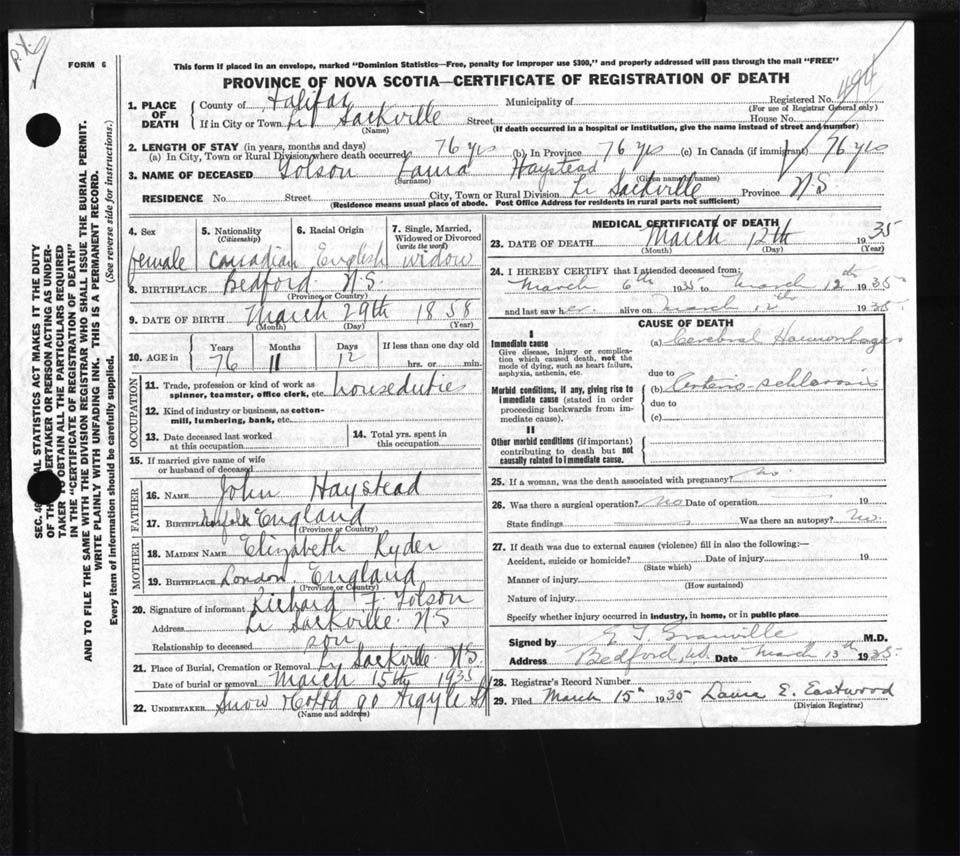 FORM 6
This form if placed in an envelope, marked "Dominion Statistics—Free, penalty for improper use $300," and properly addressed will pass through the mail "FREE"
PROVINCE OF NOVA SCOTIA—CERTIFICATE OF REGISTRATION OF DEATH
1. PLACE OF DEATH
County of Halifax Municipality of Registered No.
(For use of Registrar General only)
If in City or Town Lr Sackville Street House No.
(Name) (If death occurred in a hospital or institution, give the name instead of street and number)
2. LENGTH OF STAY (in years, months and days)
(a) In City, Town or Rural Division where death occurred 76 yrs (b) In Province 76 yrs (c) In Canada (if immigrant) 76 yrs
3. NAME OF DECEASED Tolson Haystead
(Surname) (Given name or names)
RESIDENCE No. Street City, Town or Rural Division Lr Sackville Province N.S
(Residence means usual place of abode. Post Office Address for residents in rural parts not sufficient)
4. Sex 5. Nationality (Citizenship) 6. Racial Origin 7. Single, Married, Widowed or Divorced (write the word)
female Canadian English widow
8. BIRTHPLACE Bedford N.S.
(Province or Country)
9. DATE OF BIRTH March 29th 1858
(Month) (Day) (Year)
10. AGE in Years Months Days If less than one day old
76 11 12 hrs. or min.
OCCUPATION
11. Trade, profession or kind of work as spinner, teamster, office clerk, etc. house duties
12. Kind of industry or business, as cotton-mill, lumbering, bank, etc.
13. Date deceased last worked at this occupation 14. Total yrs. spent in this occupation
15. If married give name of wife or husband of deceased
FATHER
16. NAME John Haystead
17. BIRTHPLACE England
(Province or Country)
MOTHER
18. MAIDEN NAME Elizabeth Ryder
19. BIRTHPLACE London England
(Province or Country)
20. Signature of informant Richard F. Tolson
Address Lr Sackville N.S
Relationship to deceased son
21. Place of Burial, Cremation or Removal Lr Sackville N.S.
Date of burial or removal March 15th 1935
22. UNDERTAKER Snow 90 Argyle St
(Name and address)
MEDICAL CERTIFICATE OF DEATH
23. DATE OF DEATH March 12th 1935
(Month) (Day) (Year)
24. I HEREBY CERTIFY that I attended deceased from:
March 6th 1935 to March 12th 1935
and last saw her alive on March 12th 1935
CAUSE OF DEATH
I
Immediate cause
Give disease, injury or complication which caused death, not the mode of dying, such as heart failure, asphyxia, asthenia, etc.
(a) Cerebral Haemorrhage
due to
Morbid conditions, if any, giving rise to immediate cause (stated in order proceeding backwards from immediate cause).
(b) Arterio-schlerosis
due to
(c)
II
Other morbid conditions (if important) contributing to death but not causally related to immediate cause.
25. If a woman, was the death associated with pregnancy? no.
26. Was there a surgical operation? no Date of operation 19
State findings Was there an autopsy? No.
27. If death was due to external causes (violence) fill in also the following:—
Accident, suicide or homicide? Date of injury 19
(State which)
Manner of injury
(How sustained)
Nature of injury
Specify whether injury occurred in industry, in home, or in public place
Signed by Granville M.D.
Address Bedford, N.S. Date March 13th 1935
28. Registrar's Record Number
29. Filed March 15th 1935 Laura E. Eastwood
(Division Registrar)
TAKER TO OBTAIN ALL THE PARTICULARS REQUIRED
IN THE "CERTIFICATE OF REGISTRATION OF DEATH"
AND TO FILE THE SAME WITH THE DIVISION REGISTRAR WHO SHALL ISSUE THE BURIAL PERMIT.
WRITE PLAINLY WITH UNFADING INK. THIS IS A PERMANENT RECORD.
Every item of information should be carefully supplied. (See reverse side for instructions.)